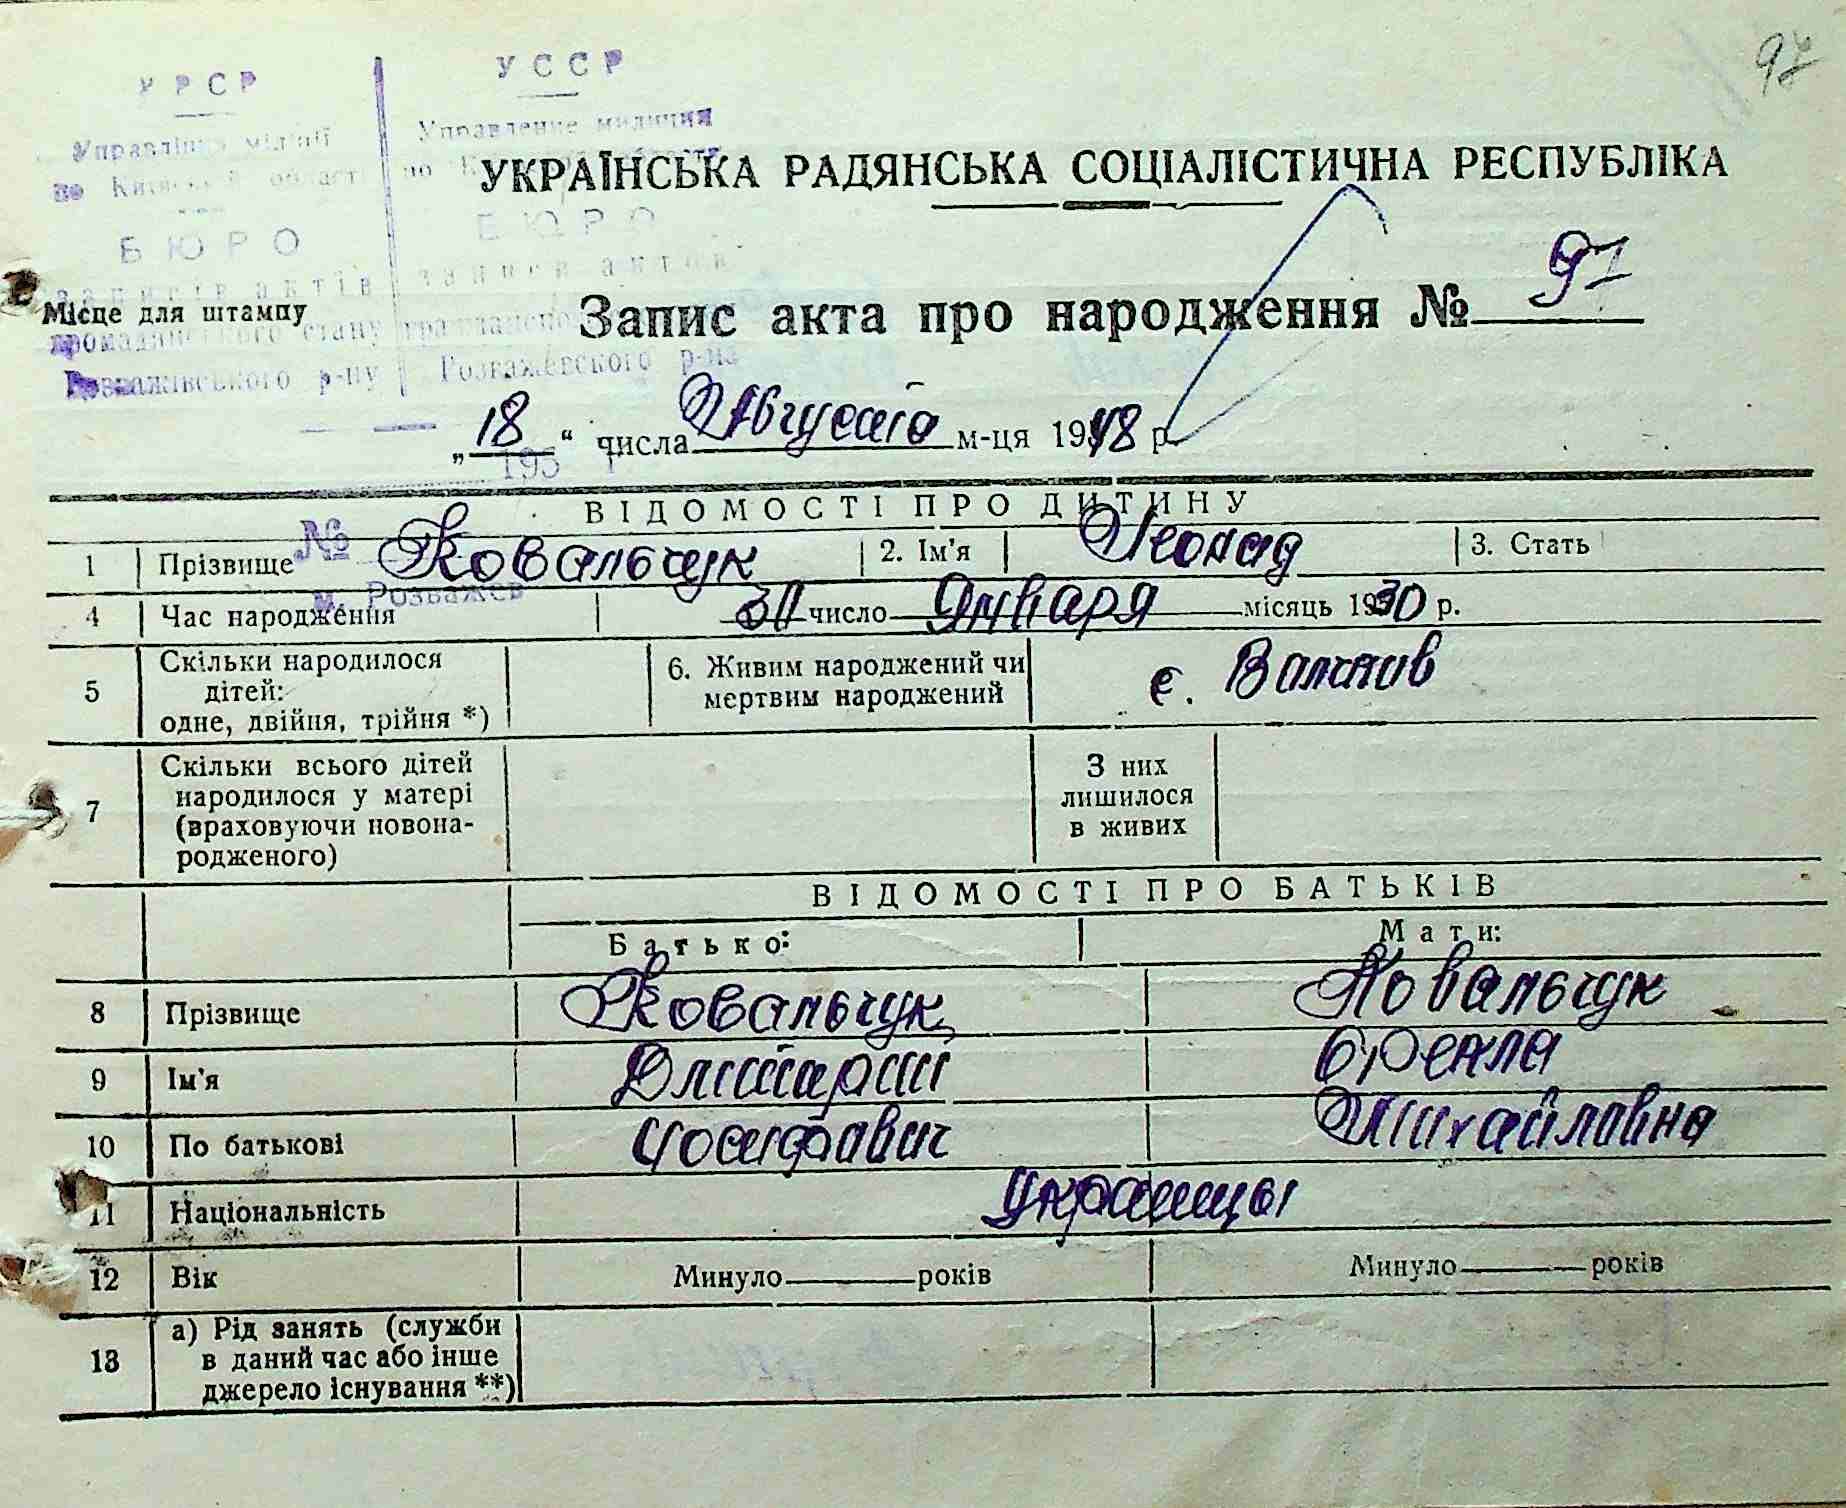 97
УРСР
УССР
Управління міліції
Управление милиции
по Київській області
по
УКРАЇНСЬКА РАДЯНСЬКА СОЦІАЛІСТИЧНА РЕСПУБЛІКА
БЮРО
БЮРО
записів актів
записи актов
Місце для штампу
Запис акта про народження № 97
громадянського стану
гражданского
Розважівського р-ну
Розважевского р-на
„18“ числа Августа м-ця 1948 р.
195 г
ВІДОМОСТІ ПРО ДИТИНУ
№
1 Прізвище Ковальчук 2. Ім'я Леонид 3. Стать
м. Розважев
4 Час народження 30 число Января місяць 1930 р.
5 Скільки народилося дітей: одне, двійня, трійня *)
6. Живим народжений чи мертвим народжений
с.
7 Скільки всього дітей народилося у матері (враховуючи новона-родженого)
З них лишилося в живих
ВІДОМОСТІ ПРО БАТЬКІВ
Батько:
Мати:
8 Прізвище Ковальчук Ковальчук
9 Ім'я Дмитрий
10 По батькові Иосифович Михайловна
11 Національність Украинцы
12 Вік Минуло років Минуло років
13 а) Рід занять (служби в даний час або інше джерело існування **)